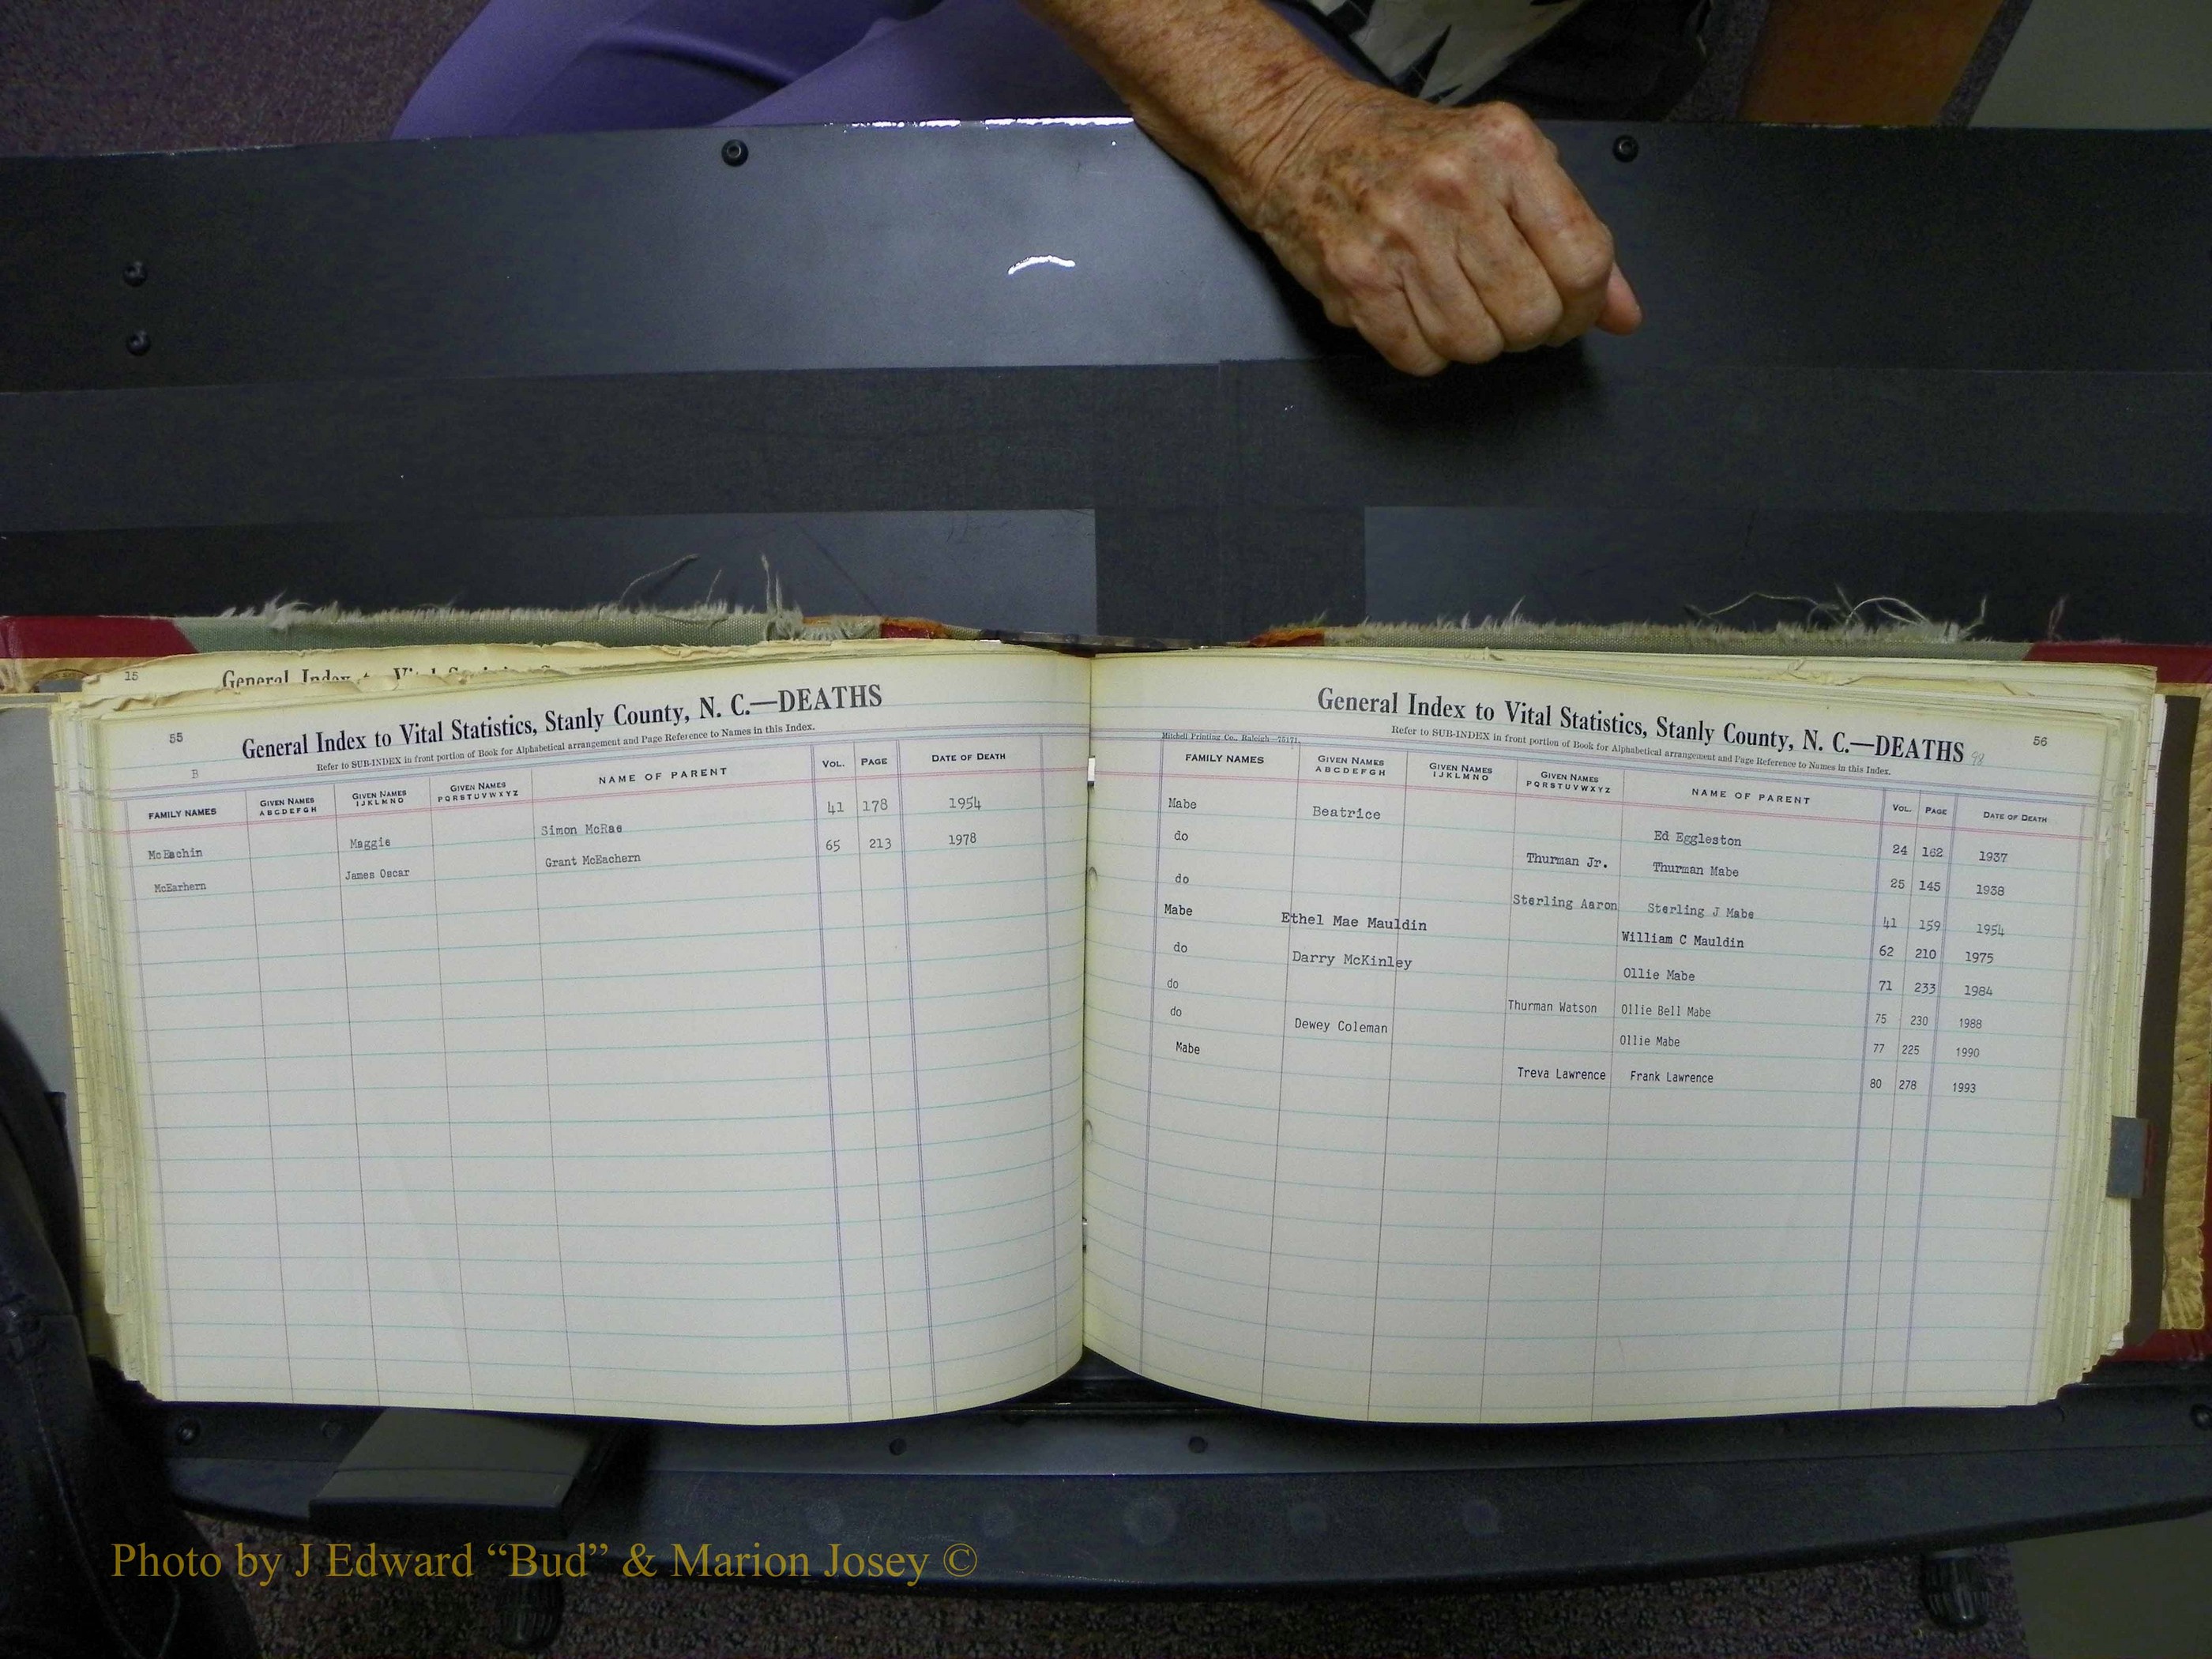 15
General Index to Vital Statistics
55
General Index to Vital Statistics, Stanly County, N. C.—DEATHS
Refer to SUB-INDEX in front portion of Book for Alphabetical arrangement and Page Reference to Names in this Index.
B
FAMILY NAMES GIVEN NAMES ABCDEFGH GIVEN NAMES IJKLMNO GIVEN NAMES PQRSTUVWXYZ NAME OF PARENT VOL. PAGE DATE OF DEATH
McEachin Maggie Simon McRae 41 178 1954
McEarhern James Oscar Grant McEachern 65 213 1978
General Index to Vital Statistics, Stanly County, N. C.—DEATHS 98
56
Refer to SUB-INDEX in front portion of Book for Alphabetical arrangement and Page Reference to Names in this Index.
Mitchell Printing Co., Raleigh—75171
FAMILY NAMES GIVEN NAMES ABCDEFGH GIVEN NAMES IJKLMNO GIVEN NAMES PQRSTUVWXYZ NAME OF PARENT VOL. PAGE DATE OF DEATH
Mabe Beatrice Ed Eggleston 24 162 1937
do Thurman Jr. Thurman Mabe 25 145 1938
do Sterling Aaron Sterling J Mabe 41 159 1954
Mabe Ethel Mae Mauldin William C Mauldin 62 210 1975
do Darry McKinley Ollie Mabe 71 233 1984
do Thurman Watson Ollie Bell Mabe 75 230 1988
do Dewey Coleman Ollie Mabe 77 225 1990
Mabe Treva Lawrence Frank Lawrence 80 278 1993
Photo by J Edward “Bud” & Marion Josey ©